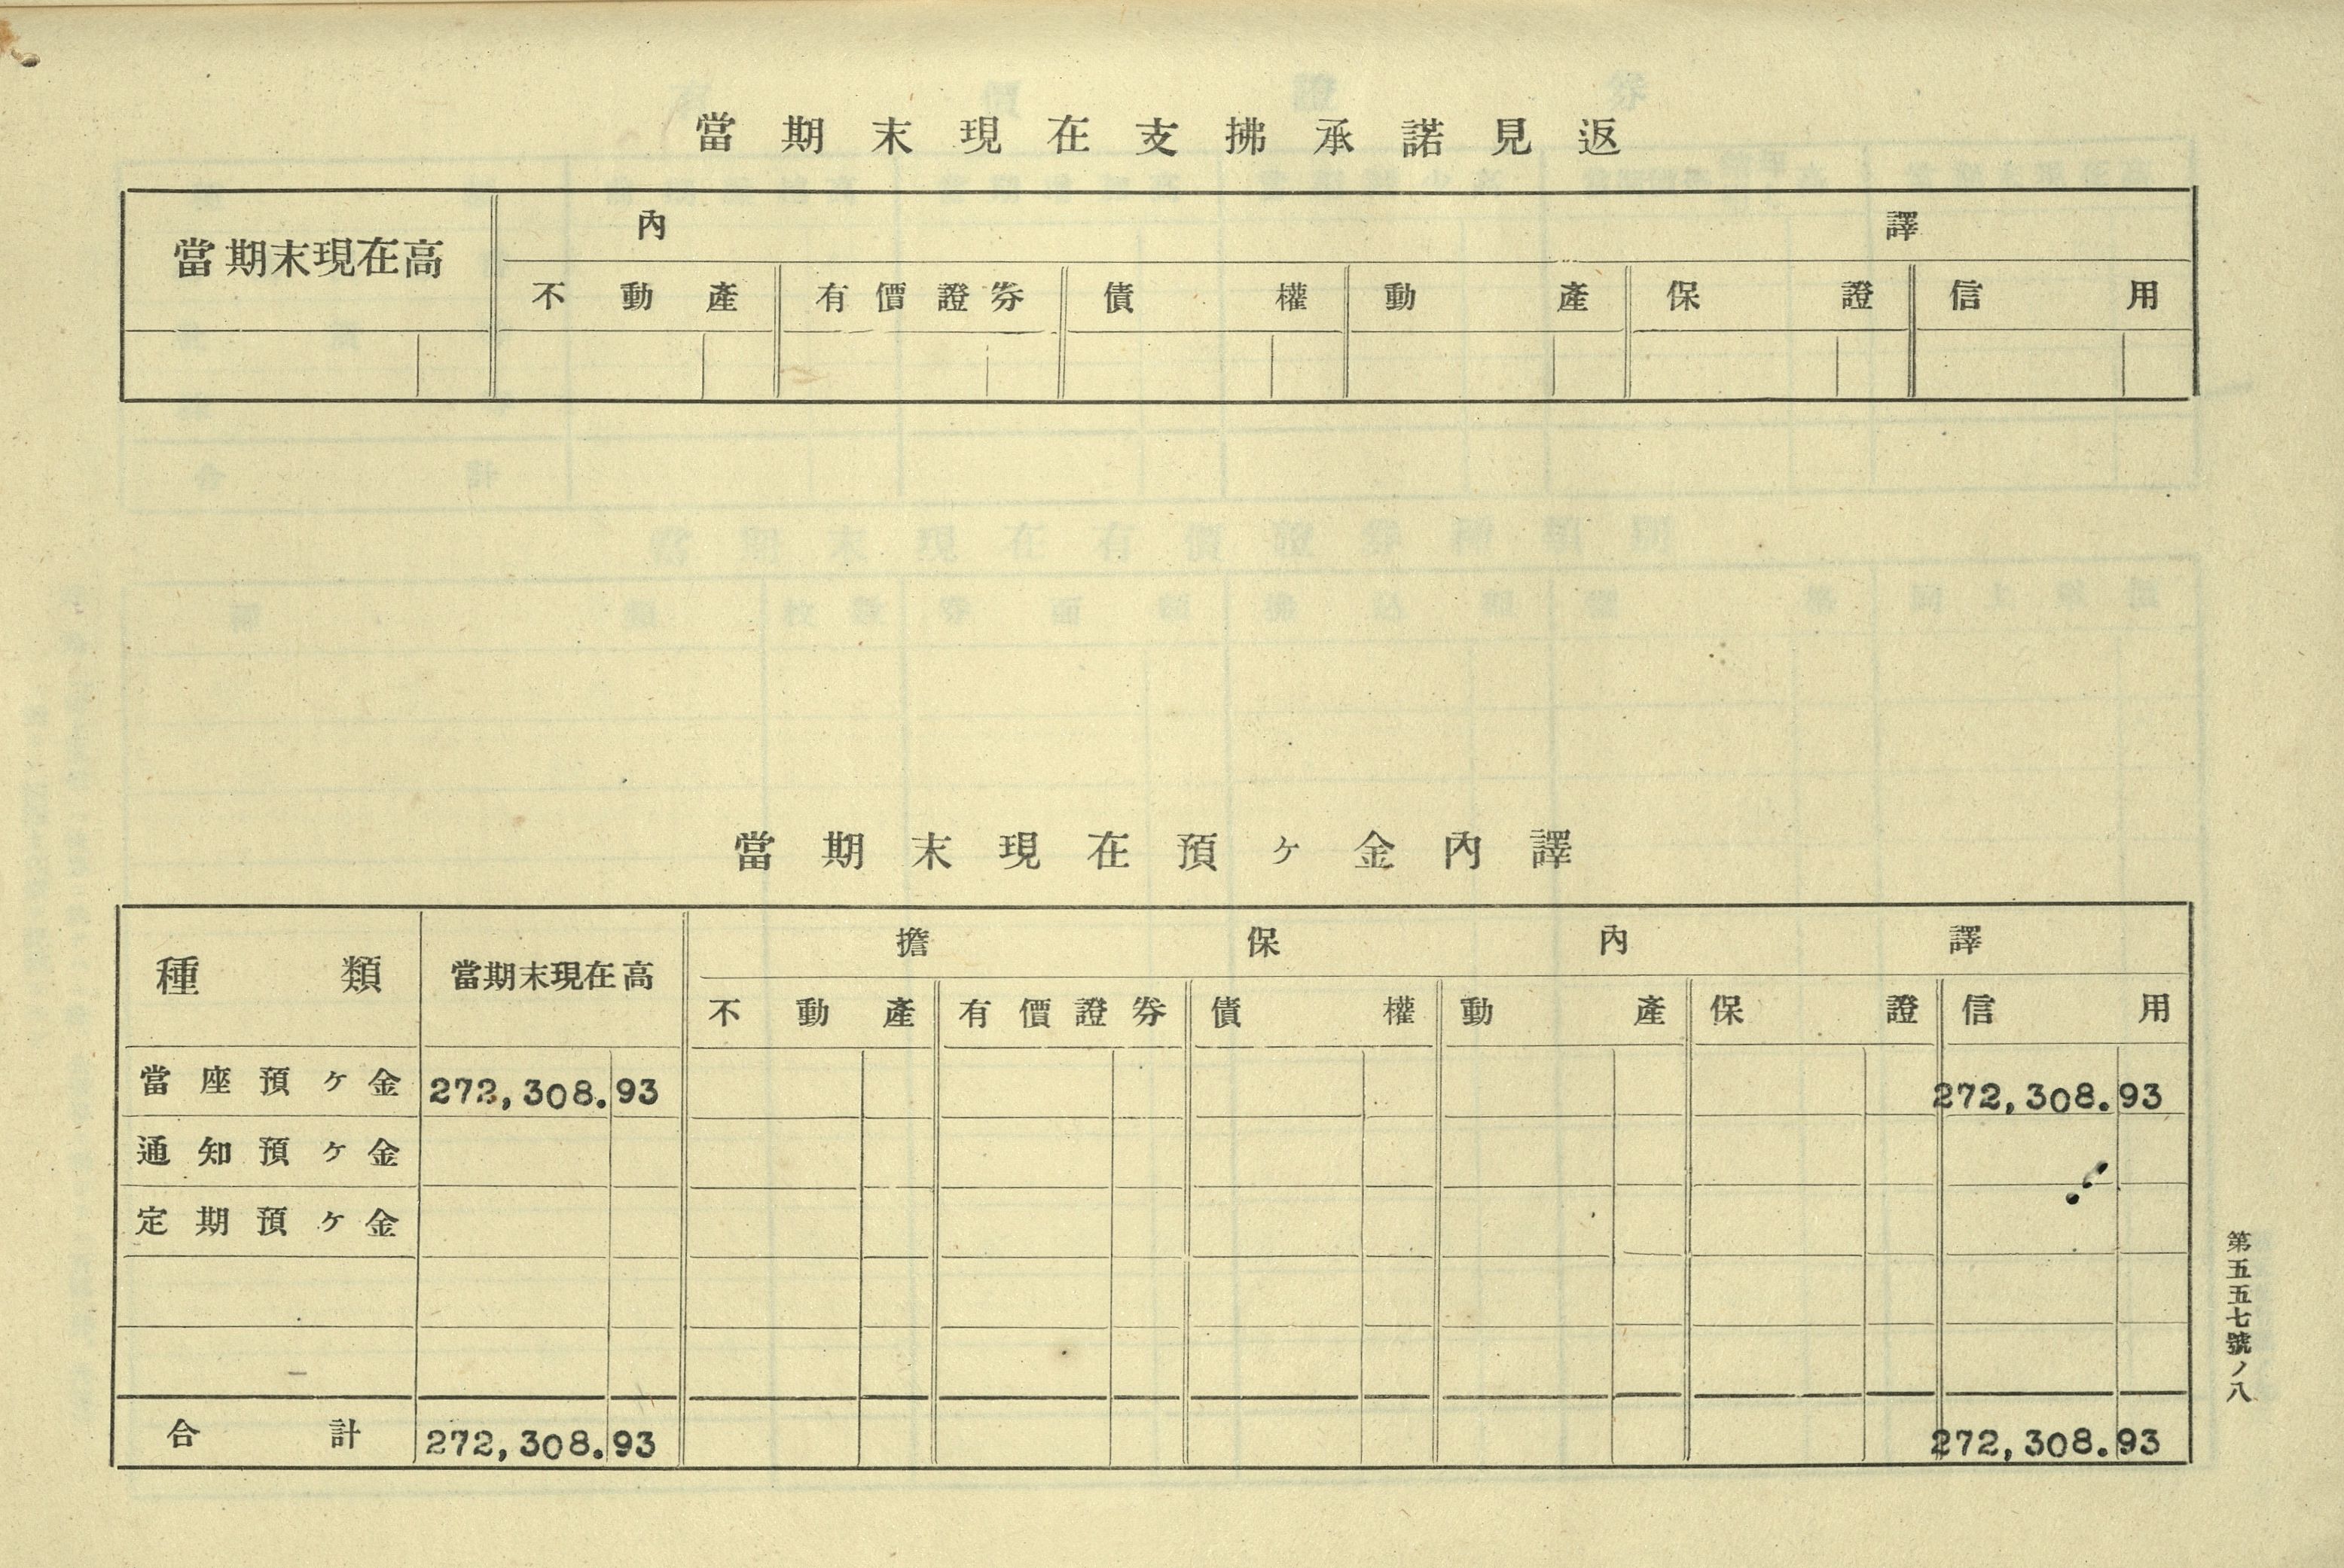 當期末現在支拂承諾見返
當期末現在高 內譯
不動產 有價證券 債權 動產 保證 信用
當期末現在預ヶ金內譯
種類 當期末現在高 擔保內譯
不動產 有價證券 債權 動產 保證 信用
當座預ヶ金 272,308.93 272,308.93
通知預ヶ金
定期預ヶ金
合計 272,308.93 272,308.93
第五五七號ノ八